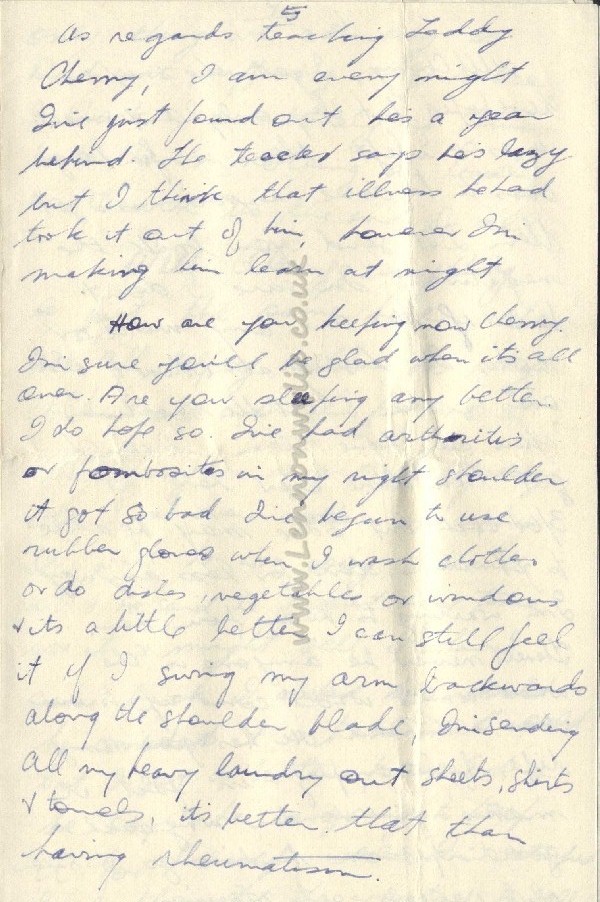 5
As regards teaching Teddy
Cherry, I am every night
I've just found out he's a year
behind. The teacher says he's lazy
but I think that illness he had
took it out of him, however I'm
making him learn at night
How are you keeping now Cherry.
I'm sure you'll be glad when its all
over. Are you sleeping any better.
I do hope so. I've had arthoritis
or in my right shoulder
it got so bad I've begun to use
rubber gloves when I wash clothes
or do dishes, vegetables or windows
& its a little better I can still feel
it if I swing my arm backwards
along the shoulder blade, I'm sending
all my heavy laundry out sheets, shirts
& towels, its better that than
having rheumatism.
www.Lennonworld.co.uk